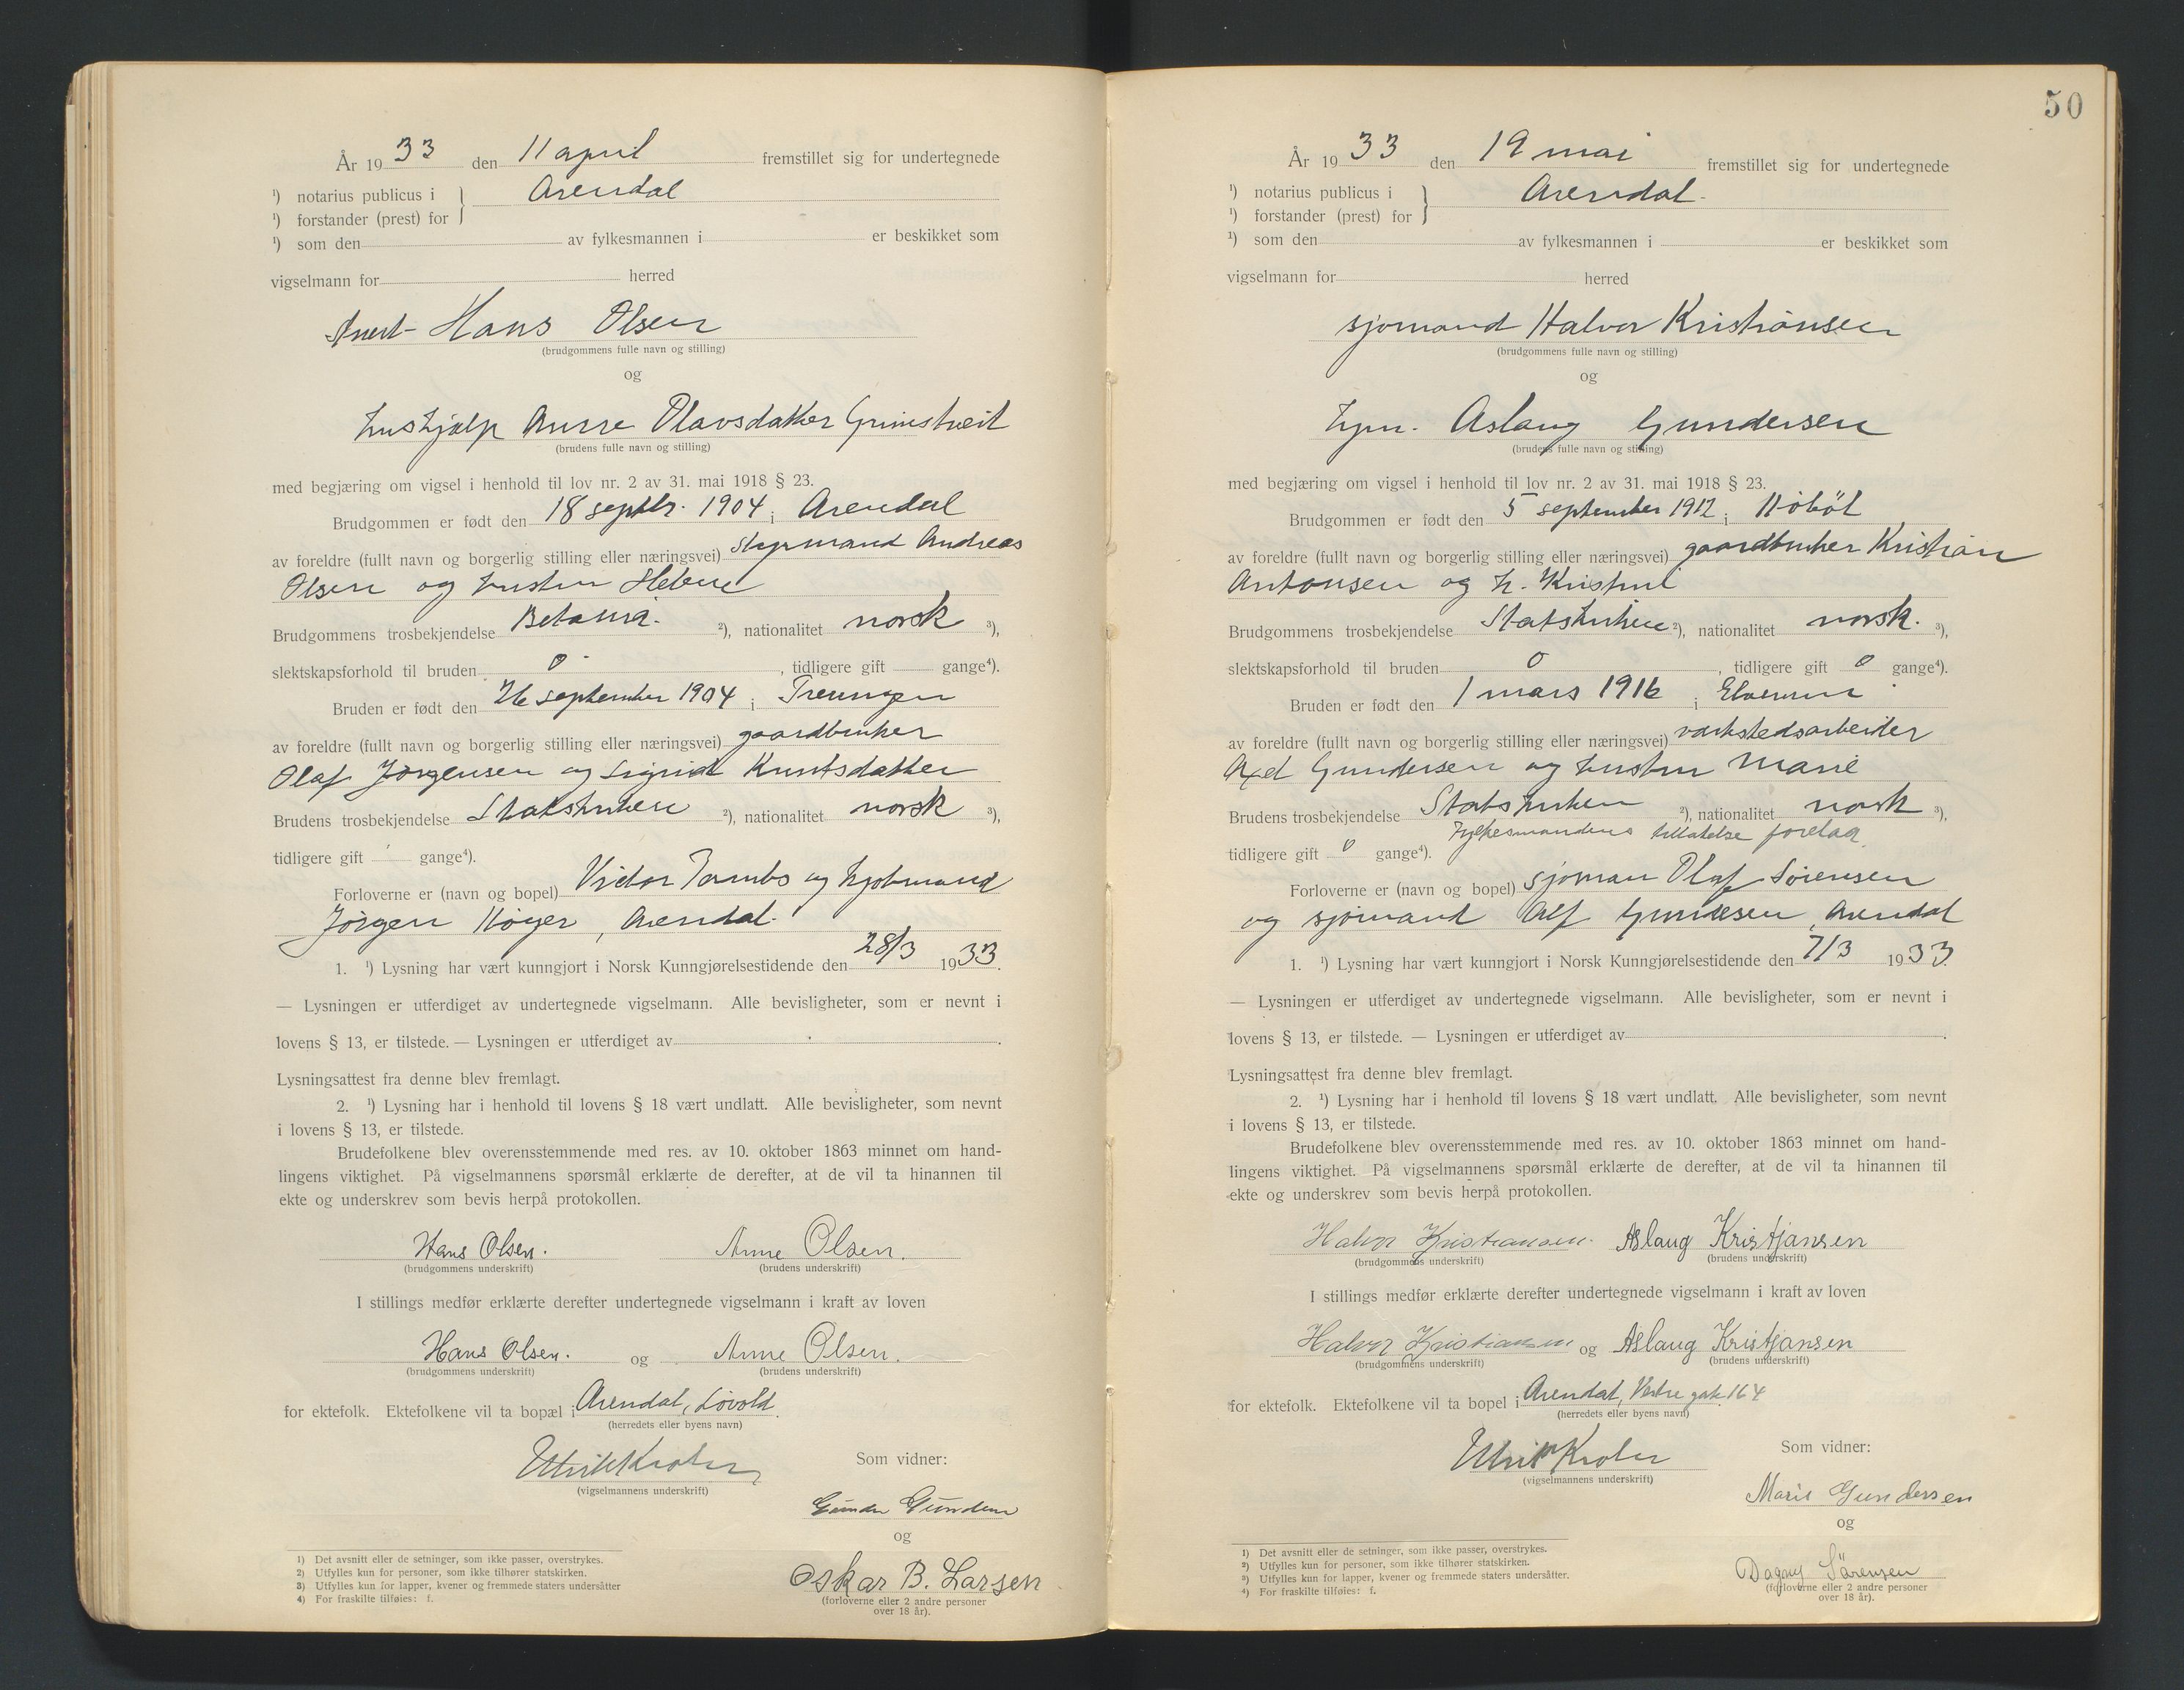 År 1933 den 11 april fremstillet sig for undertegnede
¹) notarius publicus i } Arendal
¹) forstander (prest) for
¹) som den av fylkesmannen i er beskikket som
vigselmann for herred
Hans Olsen
(brudgommens fulle navn og stilling)
og
hushjelp Anne Olavsdatter Grimstveit
(brudens fulle navn og stilling)
med begjæring om vigsel i henhold til lov nr. 2 av 31. mai 1918 § 23.
Brudgommen er født den 18 septbr. 1904 i Arendal
av foreldre (fullt navn og borgerlig stilling eller næringsvei) styrmand Andreas
Olsen og hustru Helene
Brudgommens trosbekjendelse Betania. ²), nationalitet norsk ³),
slektskapsforhold til bruden 0 , tidligere gift gange⁴).
Bruden er født den 26 september 1904 i Treungen
av foreldre (fullt navn og borgerlig stilling eller næringsvei) gaardbruker
Olaf Jørgensen og Sigrid Knutsdatter
Brudens trosbekjendelse Statskirken ²), nationalitet norsk ³),
tidligere gift gange⁴).
Forloverne er (navn og bopel) Victor Tambs og
Jørgen Høyer, Arendal.
1. ¹) Lysning har vært kunngjort i Norsk Kunngjørelsestidende den 28/3 1933.
— Lysningen er utferdiget av undertegnede vigselmann. Alle bevisligheter, som er nevnt i
lovens § 13, er tilstede. — Lysningen er utferdiget av .
Lysningsattest fra denne blev fremlagt.
2. ¹) Lysning har i henhold til lovens § 18 vært undlatt. Alle bevisligheter, som nevnt
i lovens § 13, er tilstede.
Brudefolkene blev overensstemmende med res. av 10. oktober 1863 minnet om hand-
lingens viktighet. På vigselmannens spørsmål erklærte de derefter, at de vil ta hinannen til
ekte og underskrev som bevis herpå protokollen.
Hans Olsen. Anne Olsen.
(brudgommens underskrift) (brudens underskrift)
I stillings medfør erklærte derefter undertegnede vigselmann i kraft av loven
Hans Olsen. og Anne Olsen.
(brudgommens underskrift) (brudens underskrift)
for ektefolk. Ektefolkene vil ta bopæl i Arendal, Løvold.
(herredets eller byens navn)
Ulrik Som vidner:
(vigselmannens underskrift)
Gunder Gundersen
og
Oskar B. Larsen
(forloverne eller 2 andre personer
over 18 år).
1) Det avsnitt eller de setninger, som ikke passer, overstrykes.
2) Utfylles kun for personer, som ikke tilhører statskirken.
3) Utfylles kun for lapper, kvener og fremmede staters undersåtter
4) For fraskilte tilføies: f.
50
År 1933 den 19 mai fremstillet sig for undertegnede
¹) notarius publicus i } Arendal.
¹) forstander (prest) for
¹) som den av fylkesmannen i er beskikket som
vigselmann for herred
sjømand Halvor Kristiansen
(brudgommens fulle navn og stilling)
og
Aslaug Gundersen
(brudens fulle navn og stilling)
med begjæring om vigsel i henhold til lov nr. 2 av 31. mai 1918 § 23.
Brudgommen er født den 5 september 1912 i Hobøl
av foreldre (fullt navn og borgerlig stilling eller næringsvei) gaardbruker Kristian
Antonsen og h. Kristine
Brudgommens trosbekjendelse Statskirken ²), nationalitet norsk. ³),
slektskapsforhold til bruden 0 , tidligere gift 0 gange⁴).
Bruden er født den 1 mars 1916 i Elverum
av foreldre (fullt navn og borgerlig stilling eller næringsvei) verkstedsarbeider
Axel Gundersen og hustru Marie
Brudens trosbekjendelse Statskirken ²), nationalitet norsk ³),
Fylkesmandens tillatelse forelaa.
tidligere gift 0 gange⁴).
Forloverne er (navn og bopel) sjøman Olaf Sørensen
og sjømand Alf Gundesen, Arendal
1. ¹) Lysning har vært kunngjort i Norsk Kunngjørelsestidende den 7/3 1933.
— Lysningen er utferdiget av undertegnede vigselmann. Alle bevisligheter, som er nevnt i
lovens § 13, er tilstede. — Lysningen er utferdiget av .
Lysningsattest fra denne blev fremlagt.
2. ¹) Lysning har i henhold til lovens § 18 vært undlatt. Alle bevisligheter, som nevnt
i lovens § 13, er tilstede.
Brudefolkene blev overensstemmende med res. av 10. oktober 1863 minnet om hand-
lingens viktighet. På vigselmannens spørsmål erklærte de derefter, at de vil ta hinannen til
ekte og underskrev som bevis herpå protokollen.
Halvor Kristiansen. Aslaug Kristjansen
(brudgommens underskrift) (brudens underskrift)
I stillings medfør erklærte derefter undertegnede vigselmann i kraft av loven
Halvor Kristiansen og Aslaug Kristjansen
(brudgommens underskrift) (brudens underskrift)
for ektefolk. Ektefolkene vil ta bopel i Arendal, Vestre gate 164
(herredets eller byens navn)
Ulrik Som vidner:
(vigselmannens underskrift)
Marie Gundersen
og
Dagny Sørensen
(forloverne eller 2 andre personer
over 18 år).
1) Det avsnitt eller de setninger, som ikke passer, overstrykes.
²) Utfylles kun for personer, som ikke tilhører statskirken.
³) Utfylles kun for lapper, kvener og fremmede staters undersåtter.
⁴) For fraskilte tilføies: f.